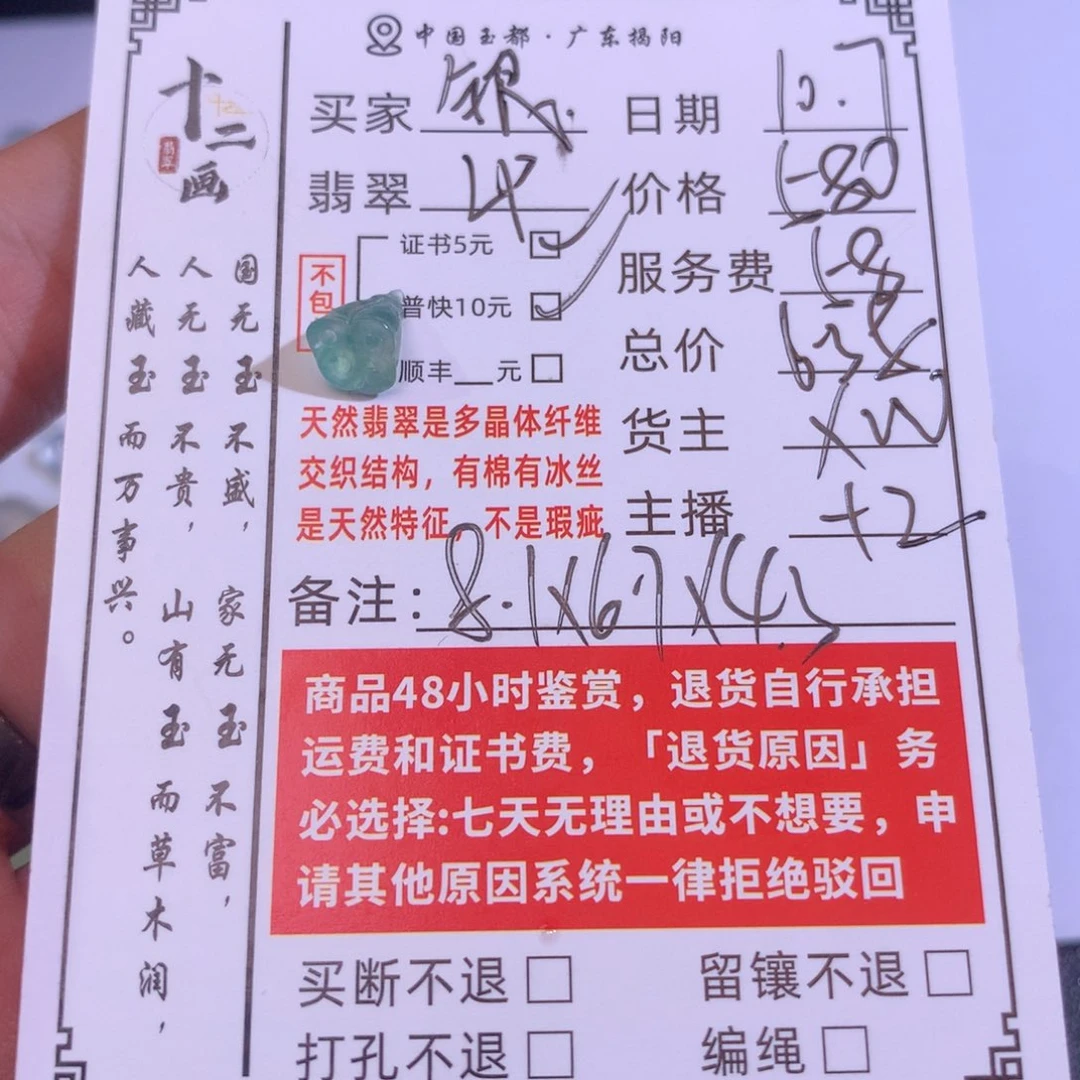 中国玉都·广东揭阳
十二画
翡翠
国无玉不盛，家无玉不富，
人无玉不贵，山有玉而草木润，
人藏玉而万事兴。
买家 银
日期 10.7
翡翠
价格
不包
证书5元
普快10元
顺丰__元
服务费
总价
货主
主播 +2
天然翡翠是多晶体纤维
交织结构，有棉有冰丝
是天然特征，不是瑕疵
备注：8.1×6.7×4.3
商品48小时鉴赏，退货自行承担
运费和证书费，「退货原因」务
必选择:七天无理由或不想要，申
请其他原因系统一律拒绝驳回
买断不退 留镶不退
打孔不退 编绳